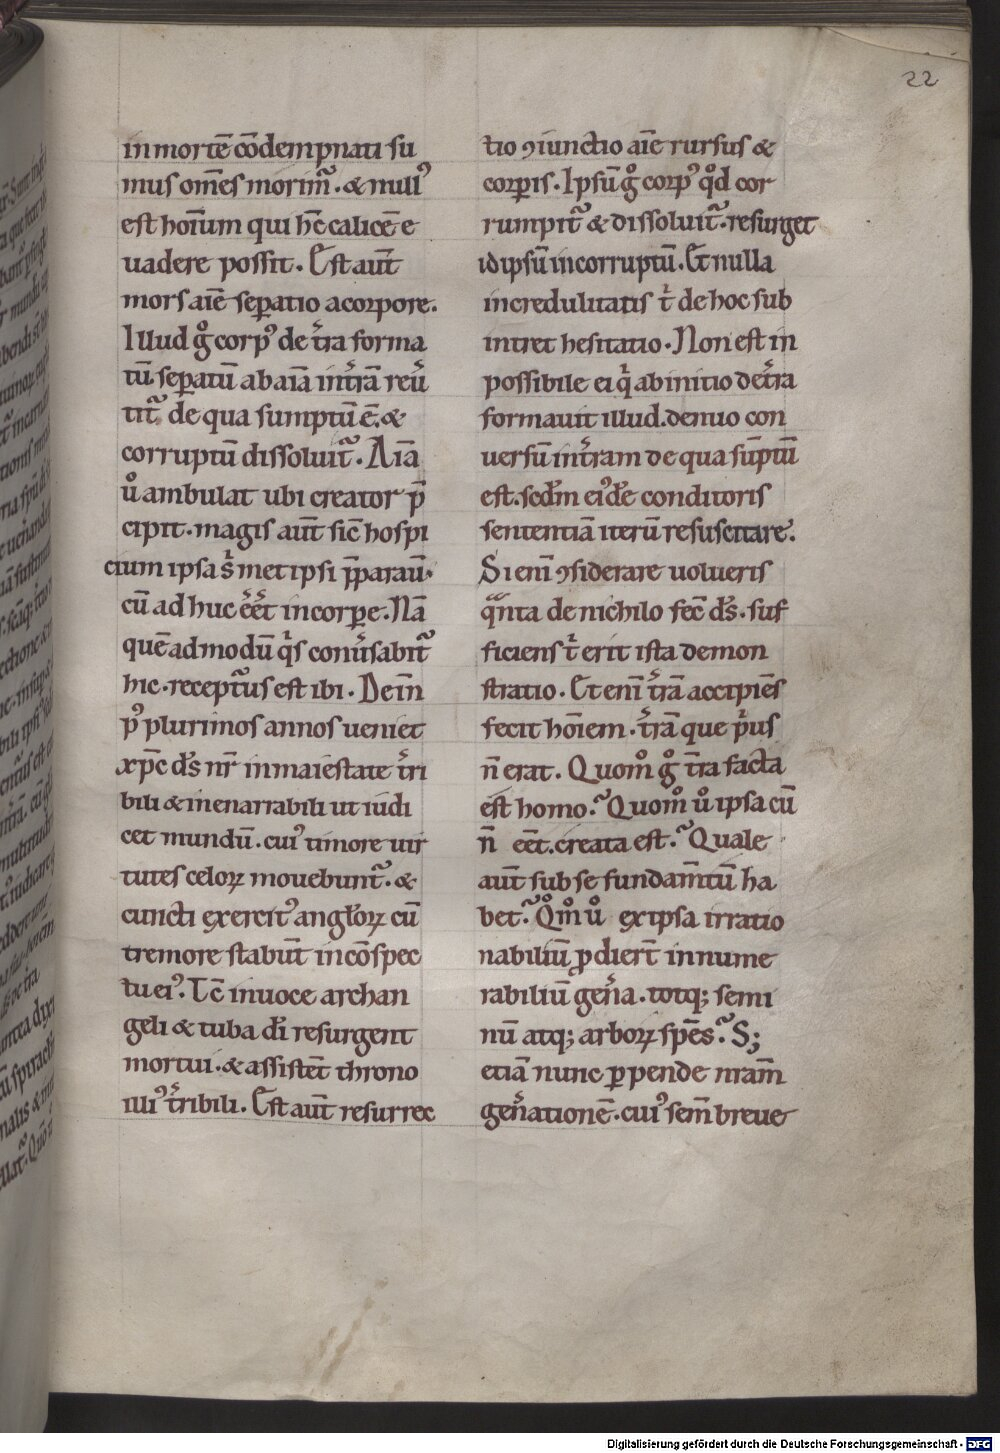 22
in mortē cōdempnati su
mus om̄es morim᷑. & null᾿
est hoīum qui hc̄ calicē e
uadere possit. Est aut̄
mors aīe sep̱atio a corpore.
Illud gͦ corp᾿ de t̓ra forma
tū. sep̱atū ab aīa in t̓rā reu̓
tit᷑ de qua sumptū ē. &
corruptū dissoluit᷑. Aīā
uͦ ambulat ubi creator p̄
cipit. magis aut̄ sic̄ hospi
cium ipsa s̓ met ipsi p̄parau̓.
cū ad huc ēēt in corp̱e. Nā
quē ad modū qͥs conu̓sabit᷑
hic. recept᷑us est ibi. Dein̄
p᾿ plurimos annos ueniet
xp̄c d̄s nr̄ in maiestate t̓ri
bili & inenarrabili ut iudi
cet mundū. cui᾿ timore uir
tutes celoꝝ mouebunt᷑. &
cuncti exercit᾿ angl̓oꝝ cū
tremore stabūt in cōspec
tu ei᾿. Tc̄ in uoce archan
geli & tuba dī resurgent
mortui. & assistēt throno
illi᾿ t̓ribili. Est aut̄ resurrec
tio ꝯiunctio aīe rursus &
corp̱is. Ipsū gͦ corp᾿ qͦd cor
rumpit᷑ & dissoluit᷑. resurget
id ipsū incorruptū. Et nulla
incredulitatis tͥ de hoc sub
intret hesitatio. Non est in
possibile ei qͥ ab initio de t̓ra
formauit illud. denuo con
uersū in t̓ram de qua sūptū
est. scd̄m ei᾿dē conditoris
sententiā iterū resuscitare.
Si enī ꝯsiderare uolueris
qᷓnta de nichilo fec̄ d̄s. suf
ficiens tͥ erit ista demon
stratio. Et enī t̓rā accipiēs
fecit hoīem. t̓rā que pͥus
n̄ erat. Quom̊ gͦ t̓ra facta
est homo.᷑ Quom̊ uͦ ipsa cū
n̄ eēt. creata est.᷑ Quale
aut̄ sub se fundam̄tū ha
bet.᷑ Qͦm̊ uͦ ex ipsa irratio
nabiliū ꝓdiert̄ innume
rabiliū gen̓a. totq; semi
nū atq; arboꝝ spēs.᷑ S;
etiā nunc ꝑpende nr̄am
gen̓ationē. cui᾿ sem̄ breue
Digitalisierung gefördert durch die Deutsche Forschungsgemeinschaft - DFG